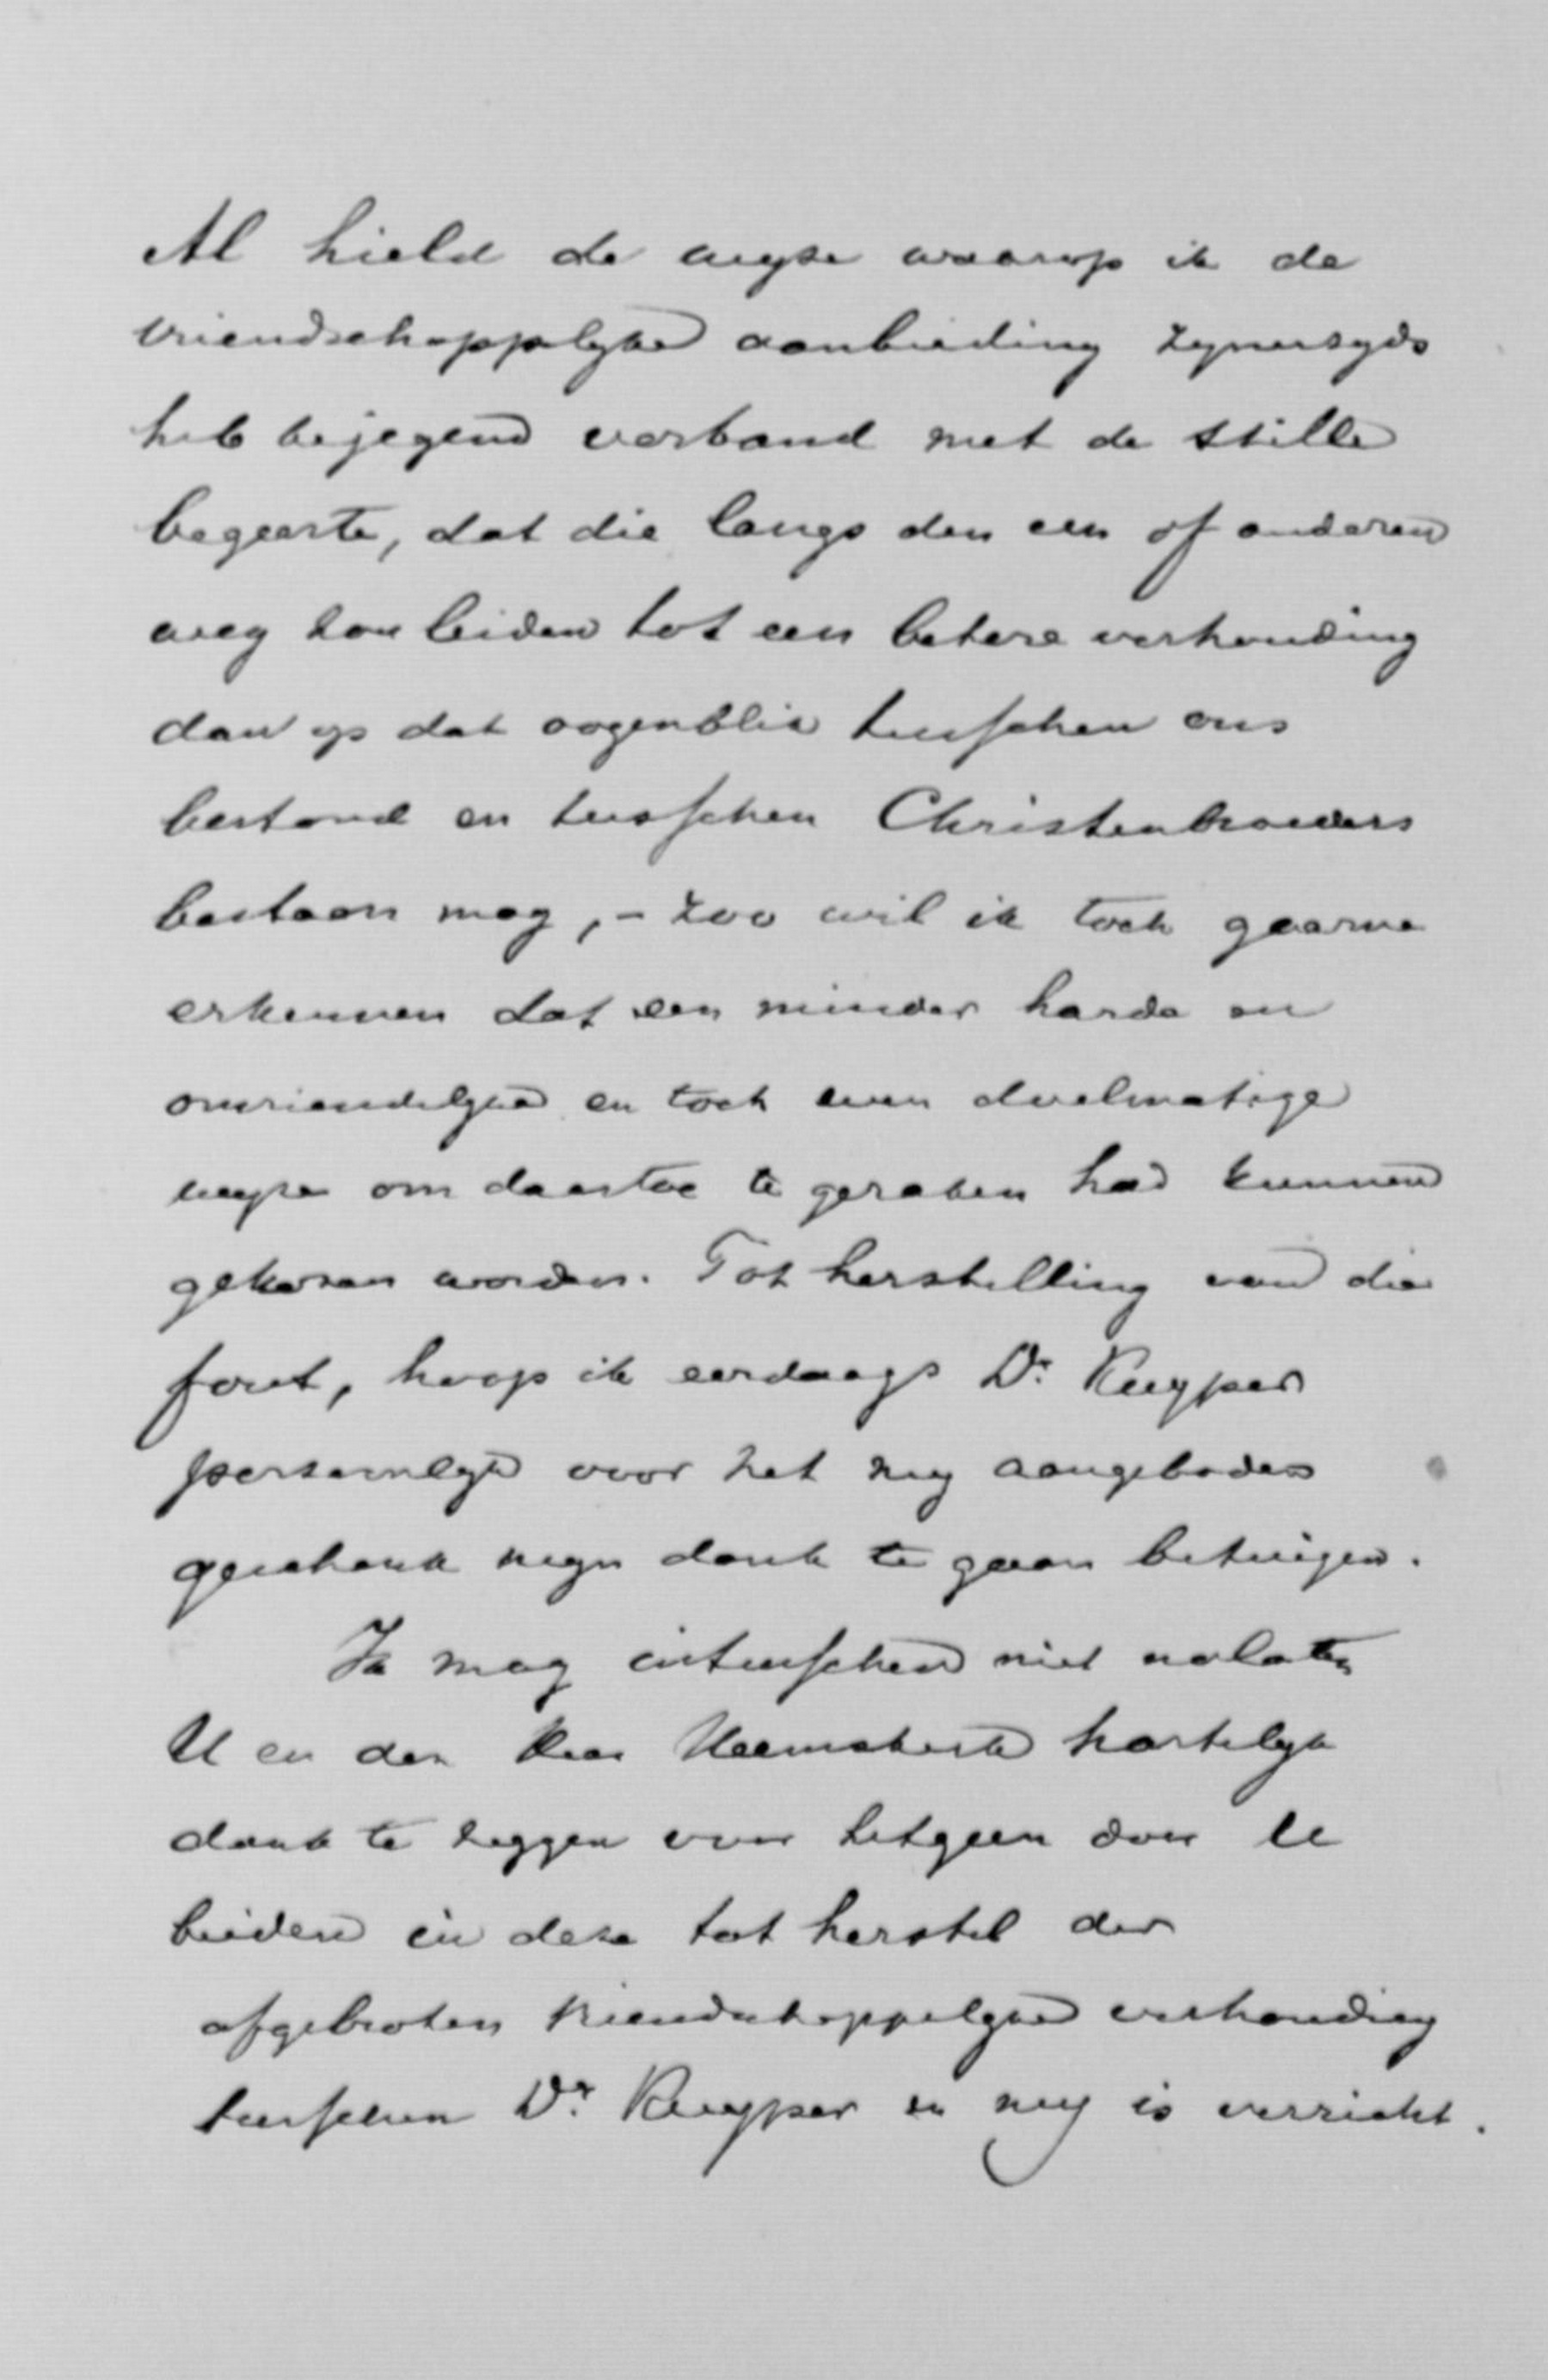 Al hield de wyze waarop ik de
vriendschappelyke aanbieding zynerzyds
heb bejegend verband met de stille
begeerte, dat die langs den een of anderen
weg zou leiden tot een betere verhouding
dan op dat oogenblik tusschen ons
bestond en tusschen Christenbroeders
bestaan mag, - zoo wil ik toch gaarne
erkennen dat een minder harde en
onvriendelyke en toch even doelmatige
wyze om daartoe te geraken had kunnen
gekozen worden. Tot herstelling van die
fout, hoop ik eerdaags Dr. Kuyper
persoonlyk voor het my aangeboden
geschenk myn dank te gaan betuigen.
Ik mag intusschen niet nalaten
U en den Heer Heemskerk hartelyk
dank te zeggen voor hetgeen door U
beiden in deze tot herstel der
afgebroken vriendschappelyke verhouding
tusschen Dr. Kuyper en my is verricht.